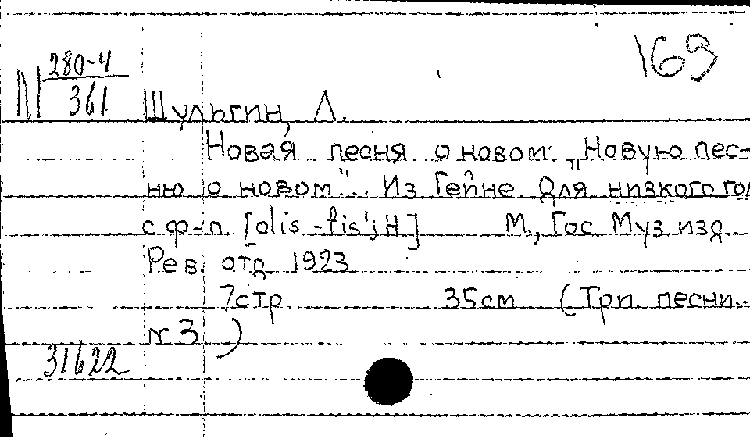 169
М 280-4
361
Шульгин, Л.
Новая песня о новом. „Новую пес-
ню о новом"... Из Гейне. Для низкого гол
с ф-п. [dis-fis'; H] М., Гос. Муз. изд.
Рев. отд. 1923
7 стр. 35 см (Три песни.
№ 3)
31622